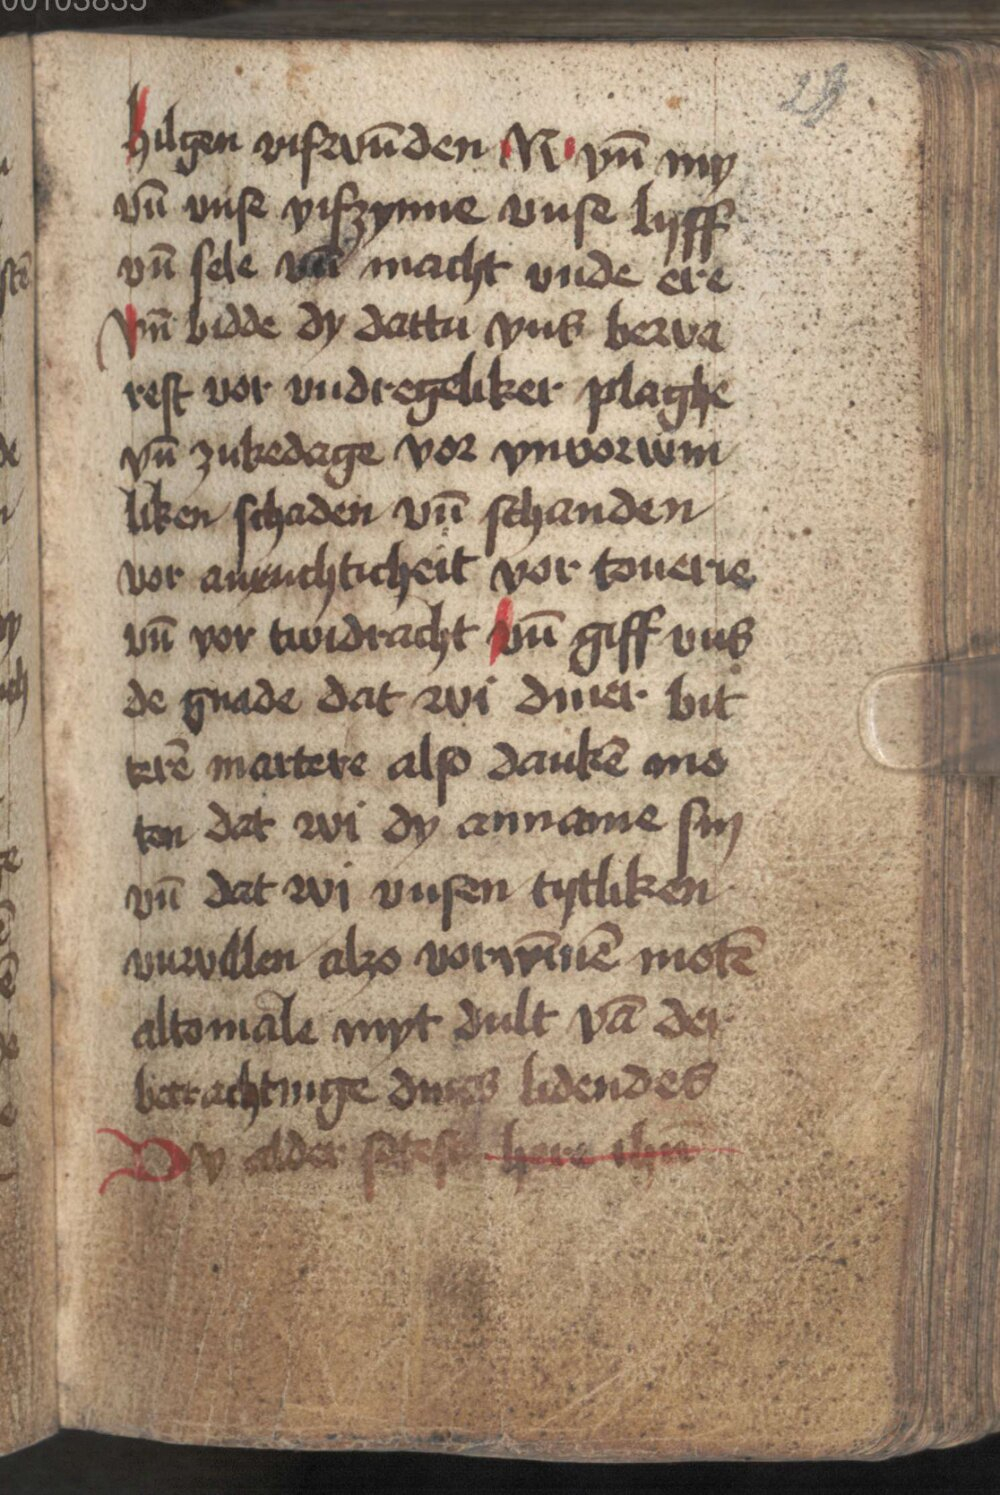 00103835
29
hilgen vifwūden N yn̄ my
vn̄ vnse vifzynne vnse lyff
vn̄ sele vn̄ macht vnde ere
vn̄ bidde dy dattu vns bewa
rest vor vndregeliker plaghe
vn̄ zukedage vor vnvorwin
liken schaden vn̄ schanden
vor vor touerie
vn̄ vor twidracht vn̄ giff vns
de gnade dat wi diner bit
terē martere also dankē mo
ten dat wi dy anname sin
vn̄ dat wi vnsen tytliken
vnwillen alzo vorwīnē motē
altomale myt dult vā der
betrachtinge dines lidendes
Dv alder soteste here ihū